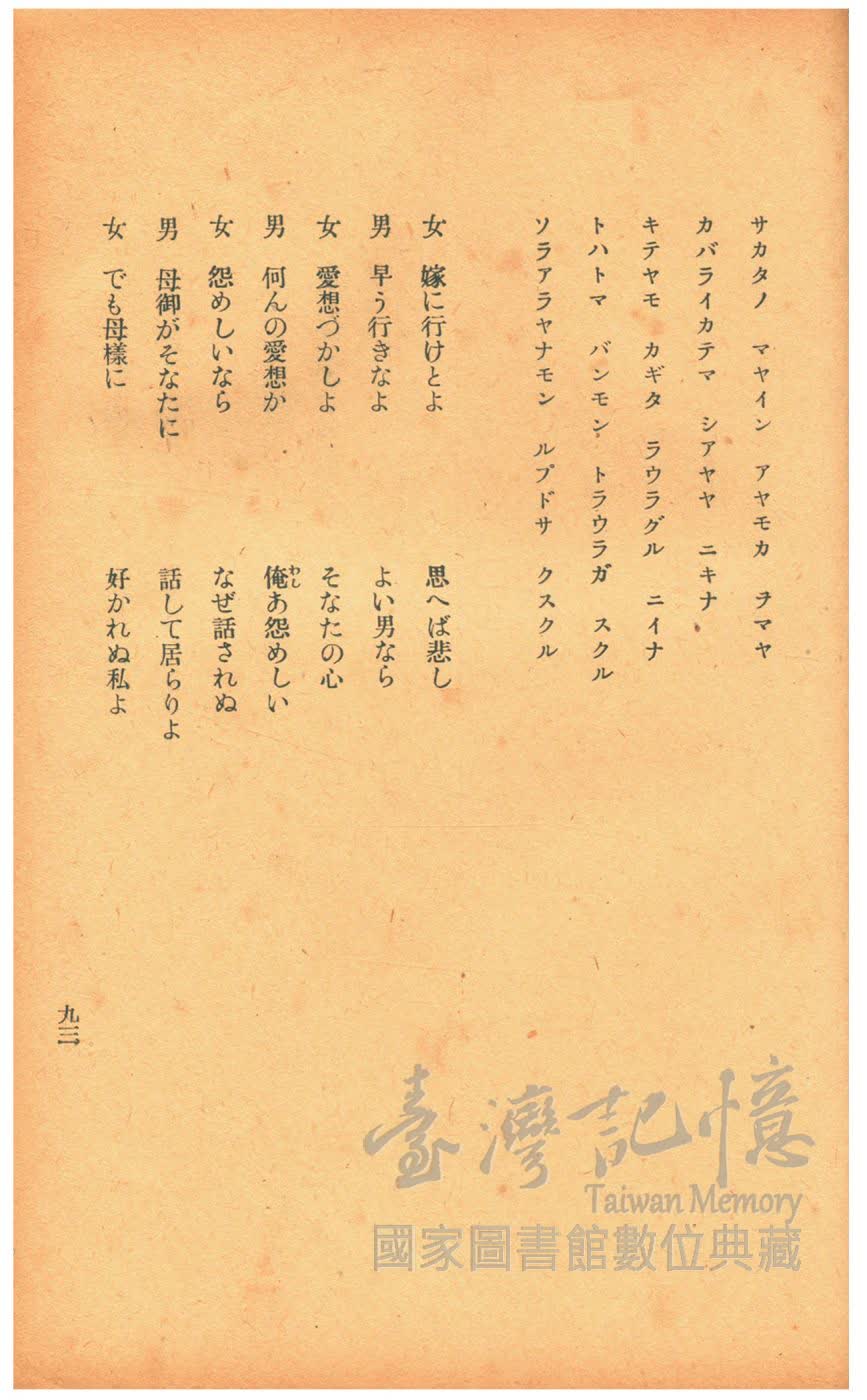 サカタノ　マヤイン　アヤモカ　ヲマヤ
カバライカテマ　シアヤヤ　ニキナ
キテヤモ　カギタ　ラウラグル　ニイナ
トハトマ　バンモン　トラウラガ　スクル
ソラアラヤナモン　ルプドサ　クスクル
女　嫁に行けとよ　思へば悲し
男　早う行きなよ　よい男なら
女　愛想づかしよ　そなたの心
男　何んの愛想か　俺あ怨めしい
わし
女　怨めしいなら　なぜ話されぬ
男　母御がそなたに　話して居らりよ
女　でも母様に　好かれぬ私よ
九三
臺灣記憶
Taiwan Memory
國家圖書館數位典藏